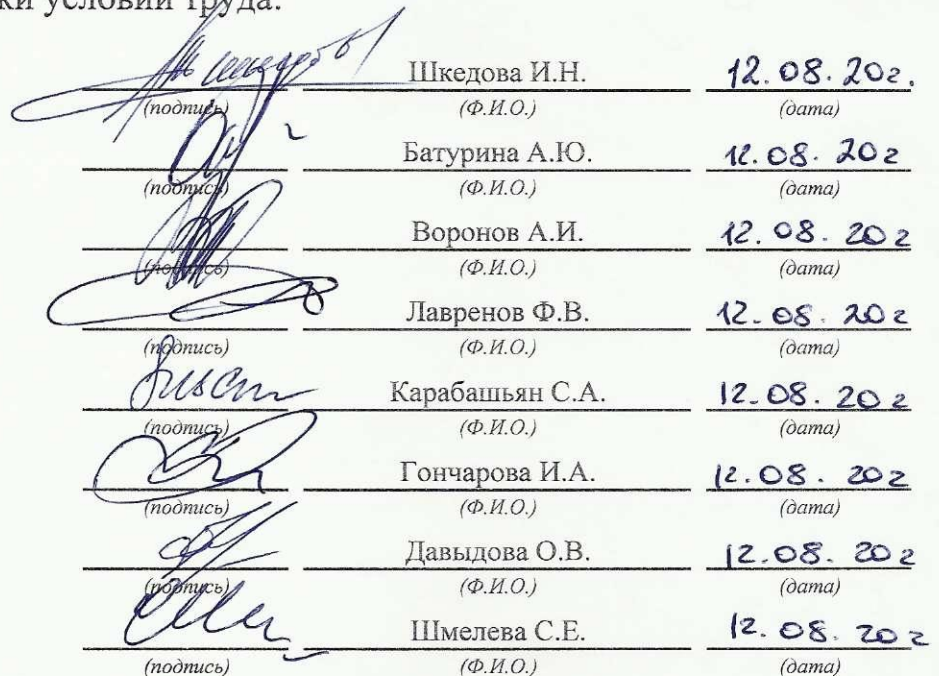 ки условий труда:
Шкедова И.Н. 12.08.20г.
(подпись) (Ф.И.О.) (дата)
Батурина А.Ю. 12.08.20г
(подпись) (Ф.И.О.) (дата)
Воронов А.И. 12.08.20г
(подпись) (Ф.И.О.) (дата)
Лавренов Ф.В. 12.08.20г
(подпись) (Ф.И.О.) (дата)
Карабашьян С.А. 12.08.20г
(подпись) (Ф.И.О.) (дата)
Гончарова И.А. 12.08.20г
(подпись) (Ф.И.О.) (дата)
Давыдова О.В. 12.08.20г
(подпись) (Ф.И.О.) (дата)
Шмелева С.Е. 12.08.20г
(подпись) (Ф.И.О.) (дата)